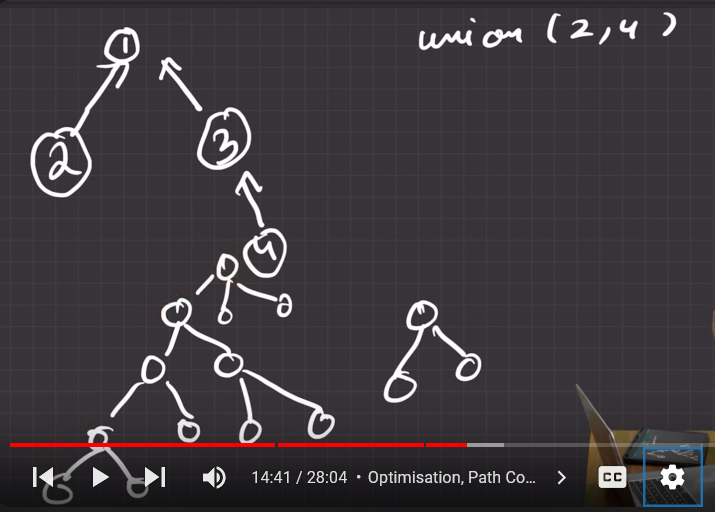 union (2,4)
1
2
3
4
14:41 / 28:04 • Optimisation, Path Co...
CC